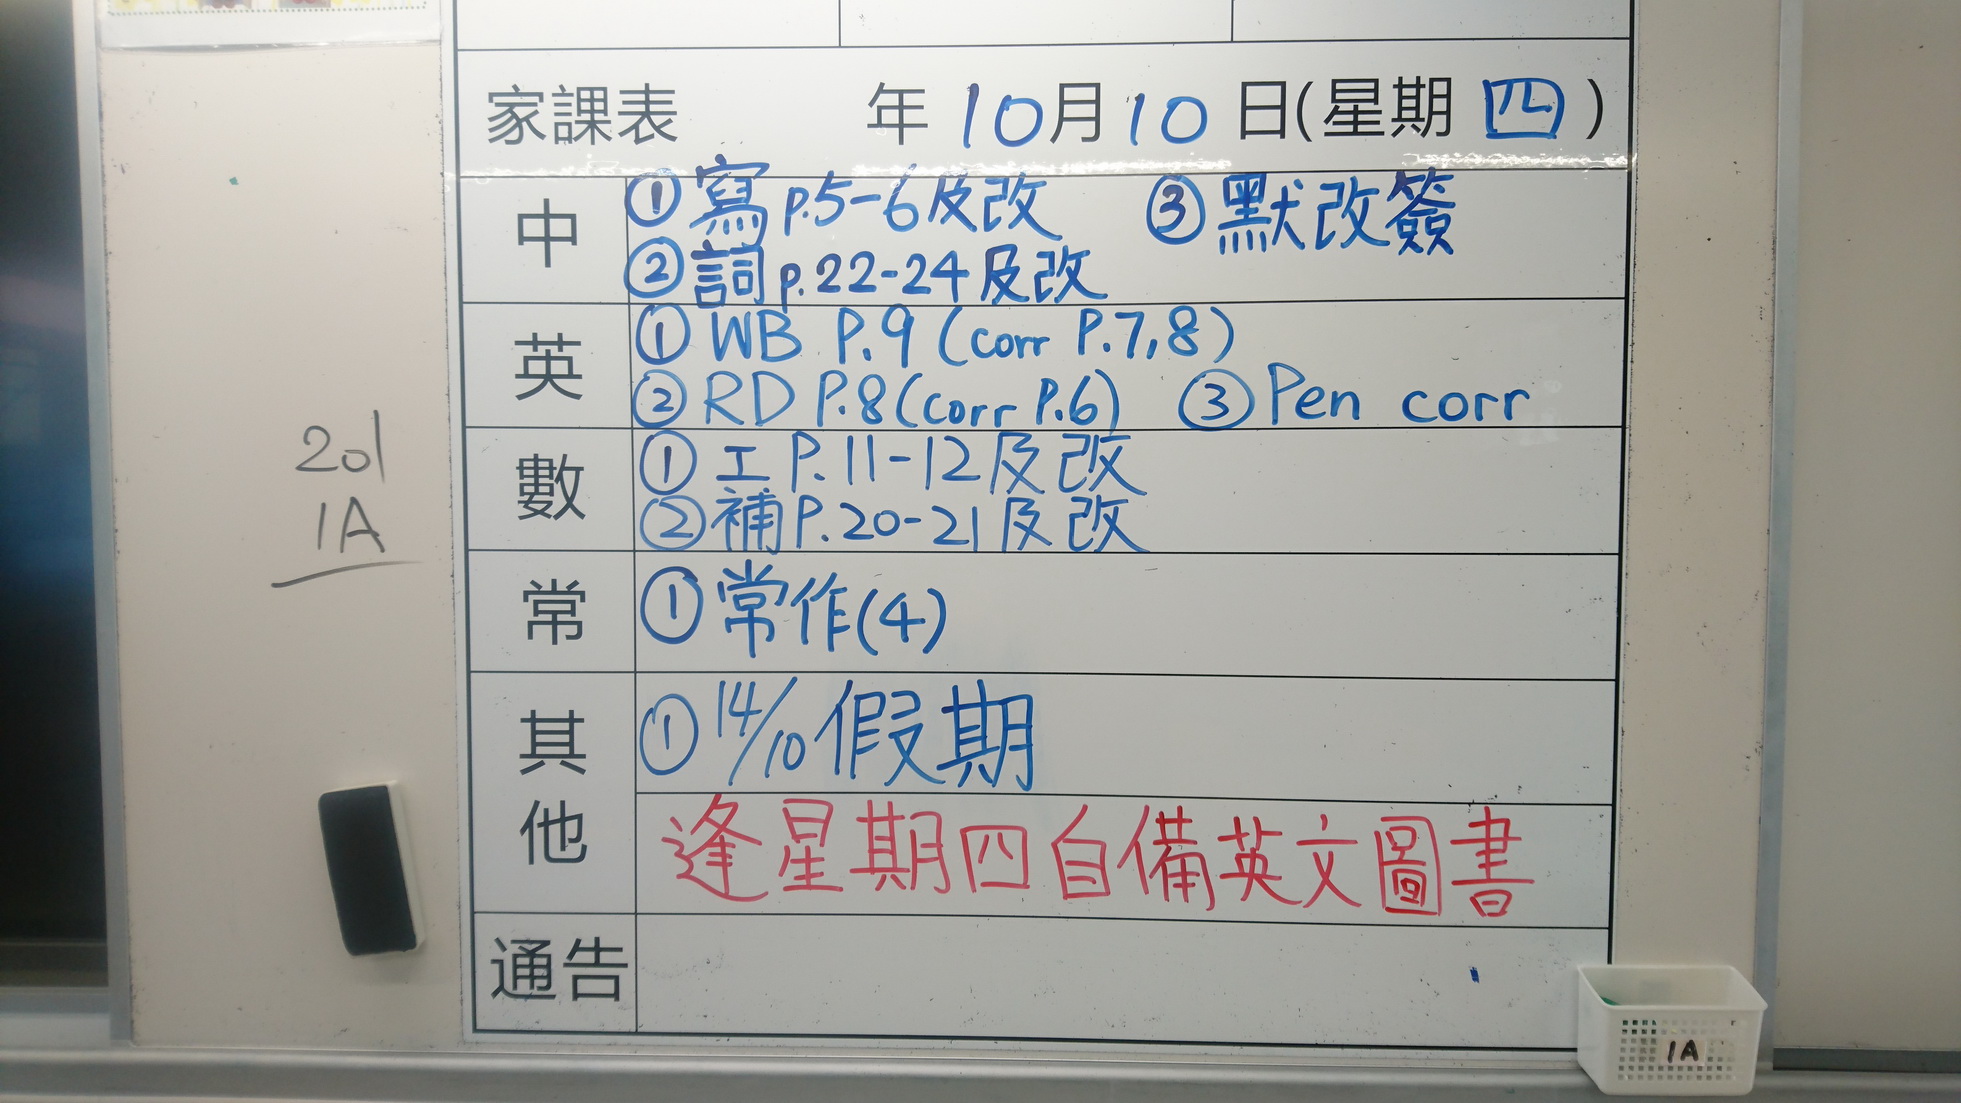 家課表 年10月10日(星期四)
中
①寫p.5-6及改 ③默改簽
②詞p.22-24及改
英
① WB P.9 (corr P.7,8)
② RD P.8 (corr P.6) ③ Pen corr
數
① 工 P.11-12及改
② 補 P.20-21及改
常
① 常作(4)
其他
① 14/10 假期
逢星期四自備英文圖書
通告
201
1A
1A